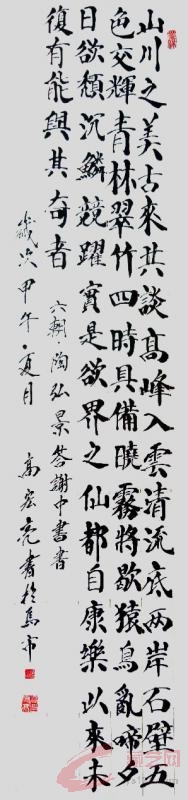 山川之美古來共談高峰入雲清流底兩岸石壁五
色交輝青林翠竹四時具備曉霧將歇猿鳥亂啼夕
日欲頹沉鱗競躍實是欲界之仙都自康樂以來未
復有能與其奇者
六朝·陶弘景答謝中書書
歲次甲午·夏月 高宏亮書於